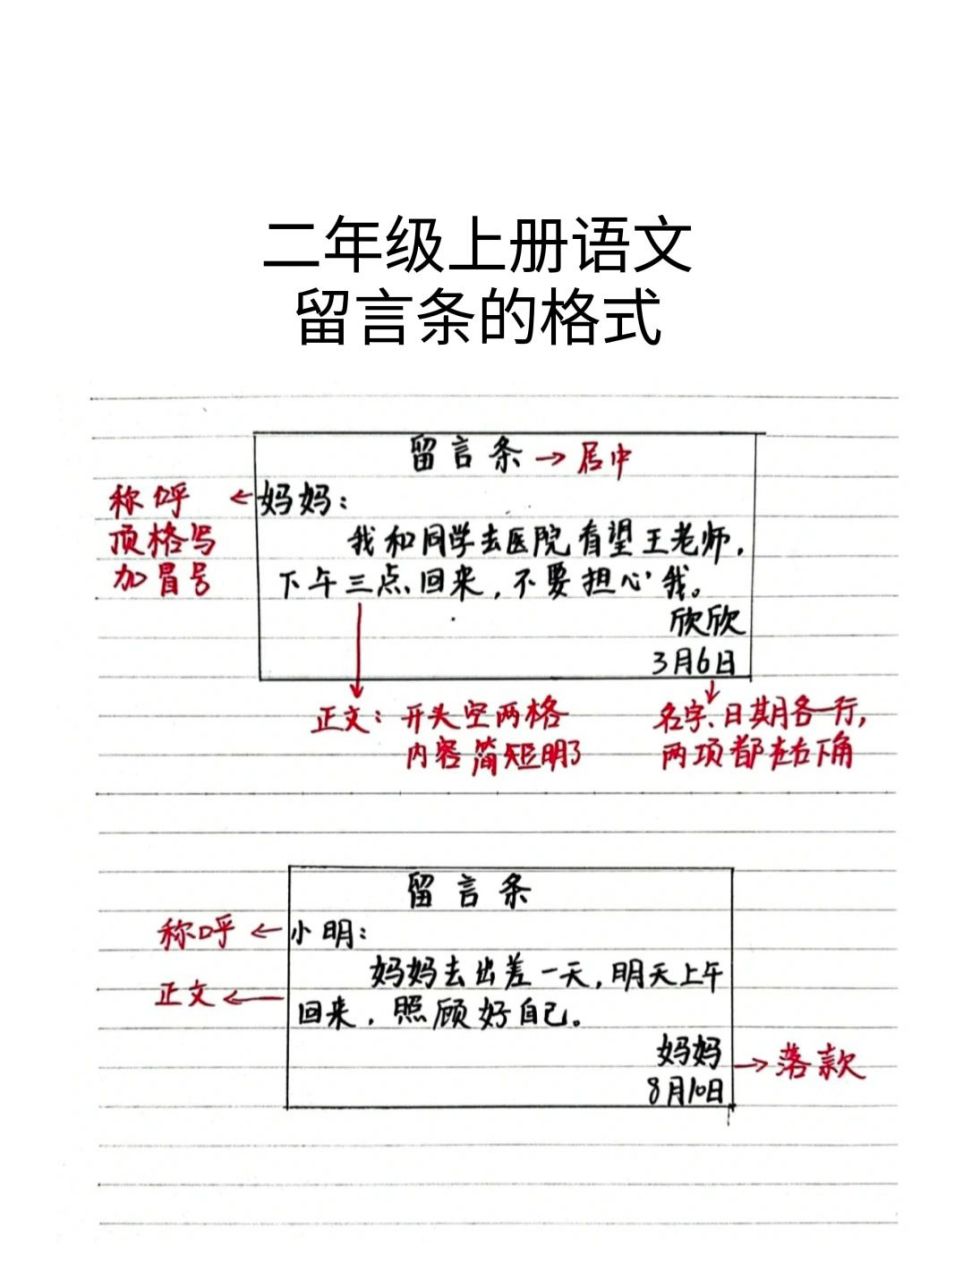 二年级上册语文
留言条的格式
留言条→居中
称呼
顶格写
加冒号
←妈妈：
我和同学去医院看望王老师，
下午三点回来，不要担心我。
欣欣
3月6日
正文：开头空两格
内容简短明了
名字、日期各一行，
两项都在右下角
留言条
称呼←小明：
妈妈去出差一天，明天上午
正文←
回来，照顾好自己。
妈妈
→落款
8月10日